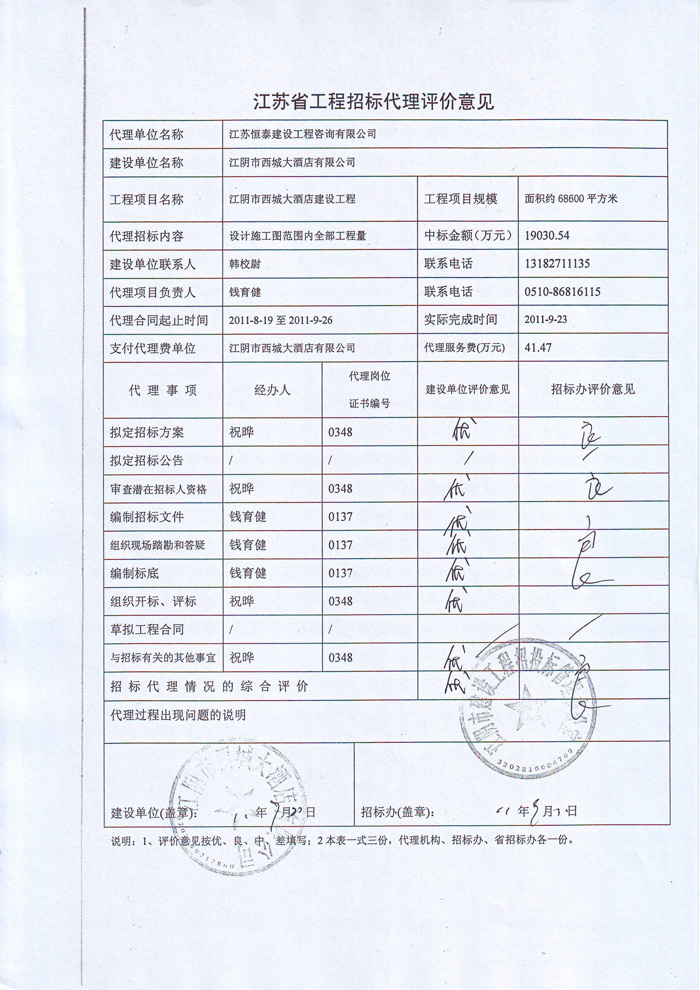 江苏省工程招标代理评价意见
代理单位名称 江苏恒泰建设工程咨询有限公司
建设单位名称 江阴市西城大酒店有限公司
工程项目名称 江阴市西城大酒店建设工程 工程项目规模 面积约 68600 平方米
代理招标内容 设计施工图范围内全部工程量 中标金额（万元） 19030.54
建设单位联系人 韩校尉 联系电话 13182711135
代理项目负责人 钱育健 联系电话 0510-86816115
代理合同起止时间 2011-8-19 至 2011-9-26 实际完成时间 2011-9-23
支付代理费单位 江阴市西城大酒店有限公司 代理服务费(万元) 41.47
代 理 事 项 经办人 代理岗位 证书编号 建设单位评价意见 招标办评价意见
拟定招标方案 祝晔 0348 优 良
拟定招标公告 / / / /
审查潜在招标人资格 祝晔 0348 优 良
编制招标文件 钱育健 0137 优
组织现场踏勘和答疑 钱育健 0137 优
编制标底 钱育健 0137 优
组织开标、评标 祝晔 0348 优
草拟工程合同 / / / /
与招标有关的其他事宜 祝晔 0348 优
招 标 代 理 情 况 的 综 合 评 价 优
代理过程出现问题的说明
江阴市建设工程招投标管理
3202816004769
建设单位(盖章): 年 月 日 招标办(盖章): 11 年 9 月 日
说明：1、评价意见按优、良、中、差填写；2 本表一式三份，代理机构、招标办、省招标办各一份。